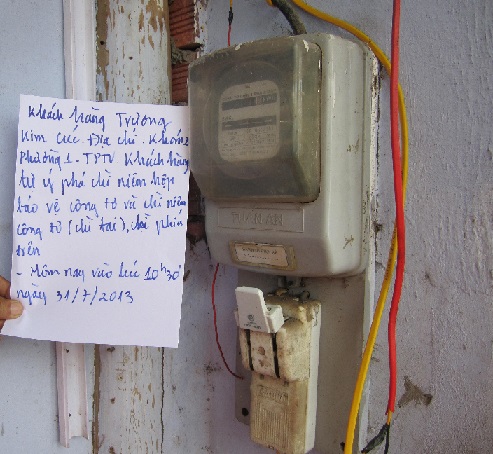 Khách hàng Trương
Kim Cúc Địa chỉ. Khóm 2
Phường 1 - TPTV Khách hàng
tự ý phá chì niêm hộp
bảo vệ công tơ và chì niêm
công tơ (chì tai), chì phía
trên
- Hôm nay vào lúc 10h30'
ngày 31/7/2013